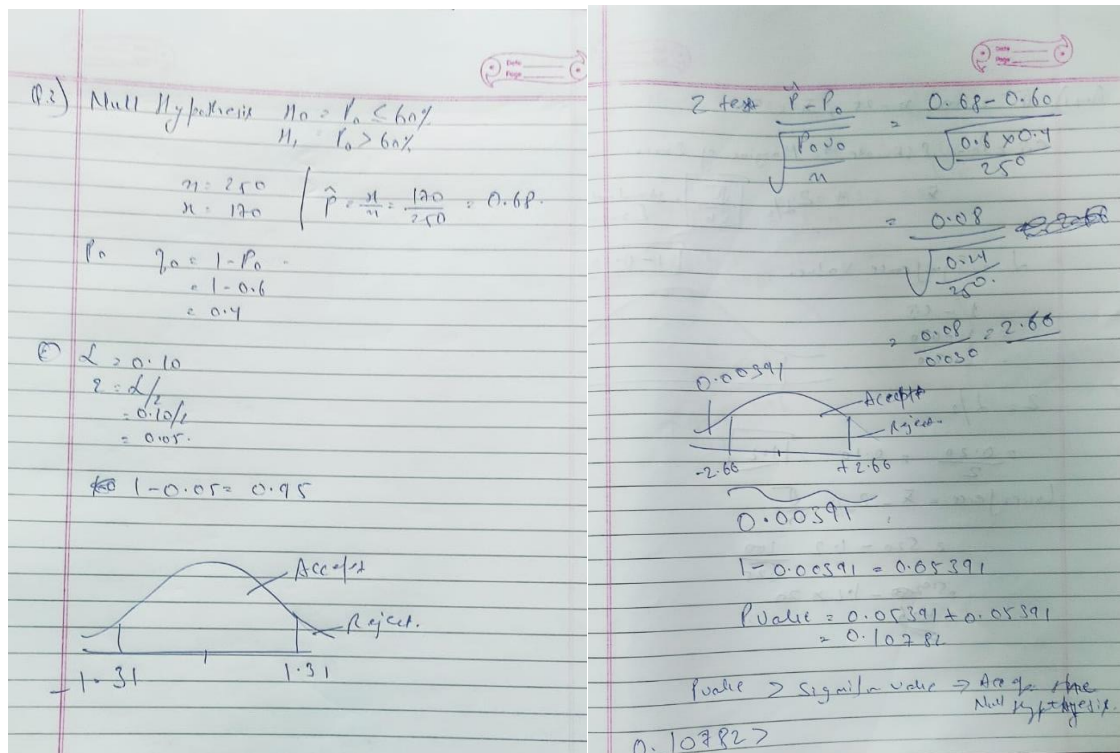 Date
Page
Q.2) Null Hypothesis H0 = P0 ≤ 60%
H1 P0 > 60%
n = 250
x = 170
p̂ = x/n = 170/250 = 0.68.
P0 q0 = 1 - P0
= 1 - 0.6
= 0.4
α = 0.10
z = α/2
= 0.10/2
= 0.05.
1 - 0.05 = 0.95
Accept
Reject.
-1.31 1.31
Date
Page
Z test p̂ - P0 / √(P0 v0 / n) = 0.68 - 0.60 / √(0.6 x 0.4 / 250)
= 0.08 / √(0.24 / 250.)
= 0.08 / 0.030 = 2.66
0.00391
Accept
Reject.
-2.66 +2.66
0.00391
1 - 0.00391 = 0.05391
P value = 0.05391 + 0.05391
= 0.10782
P value > value ⇒ the
Null Hypothesis.
0.10782 >